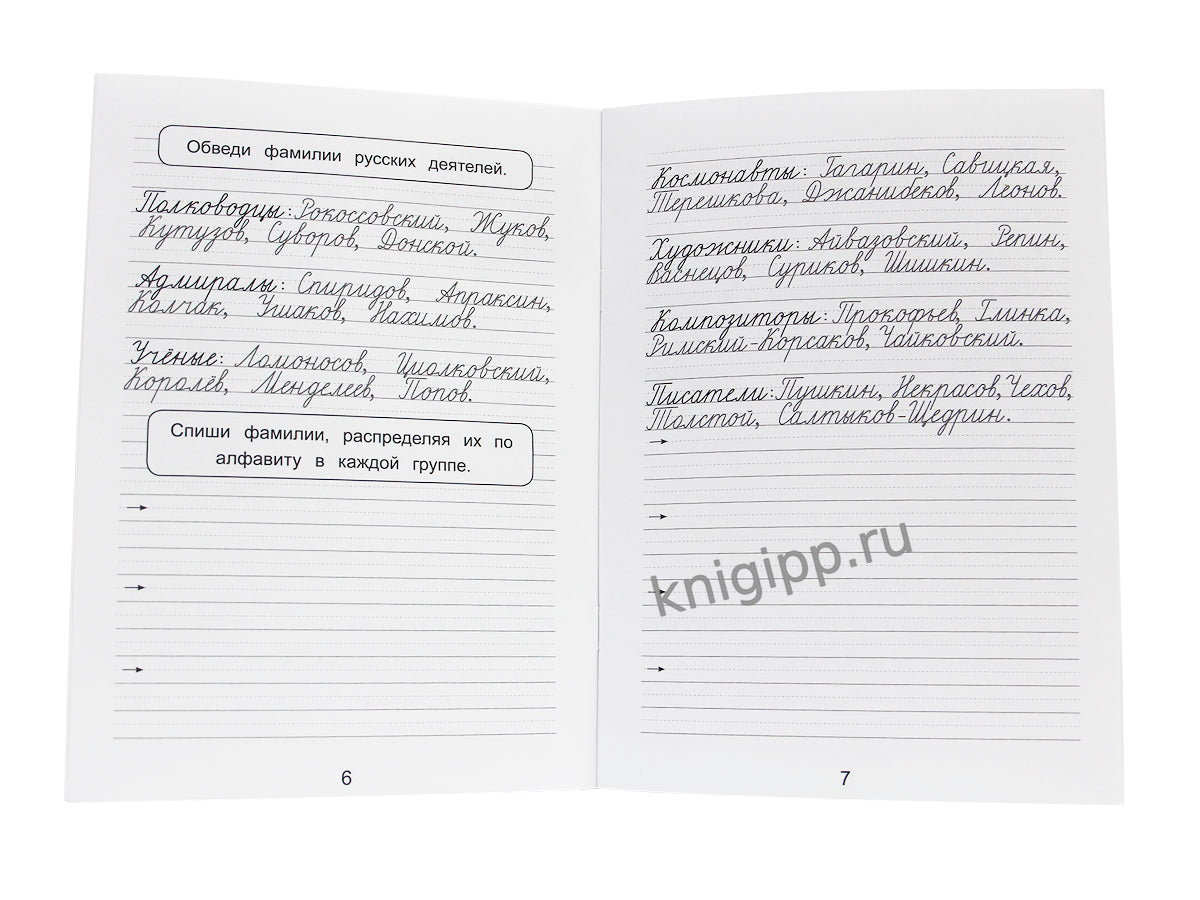 Обведи фамилии русских деятелей.
Полководцы: Рокоссовский, Жуков,
Кутузов, Суворов, Донской.
Адмиралы: Спиридов, Апраксин,
Колчак, Ушаков, Нахимов.
Учёные: Ломоносов, Циолковский,
Королёв, Менделеев, Попов.
Спиши фамилии, распределяя их по
алфавиту в каждой группе.
6
Космонавты: Гагарин, Савицкая,
Терешкова, Джанибеков, Леонов.
Художники: Айвазовский, Репин,
Васнецов, Суриков, Шишкин.
Композиторы: Прокофьев, Глинка,
Римский-Корсаков, Чайковский.
Писатели: Пушкин, Некрасов, Чехов,
Толстой, Салтыков-Щедрин.
knigipp.ru
7